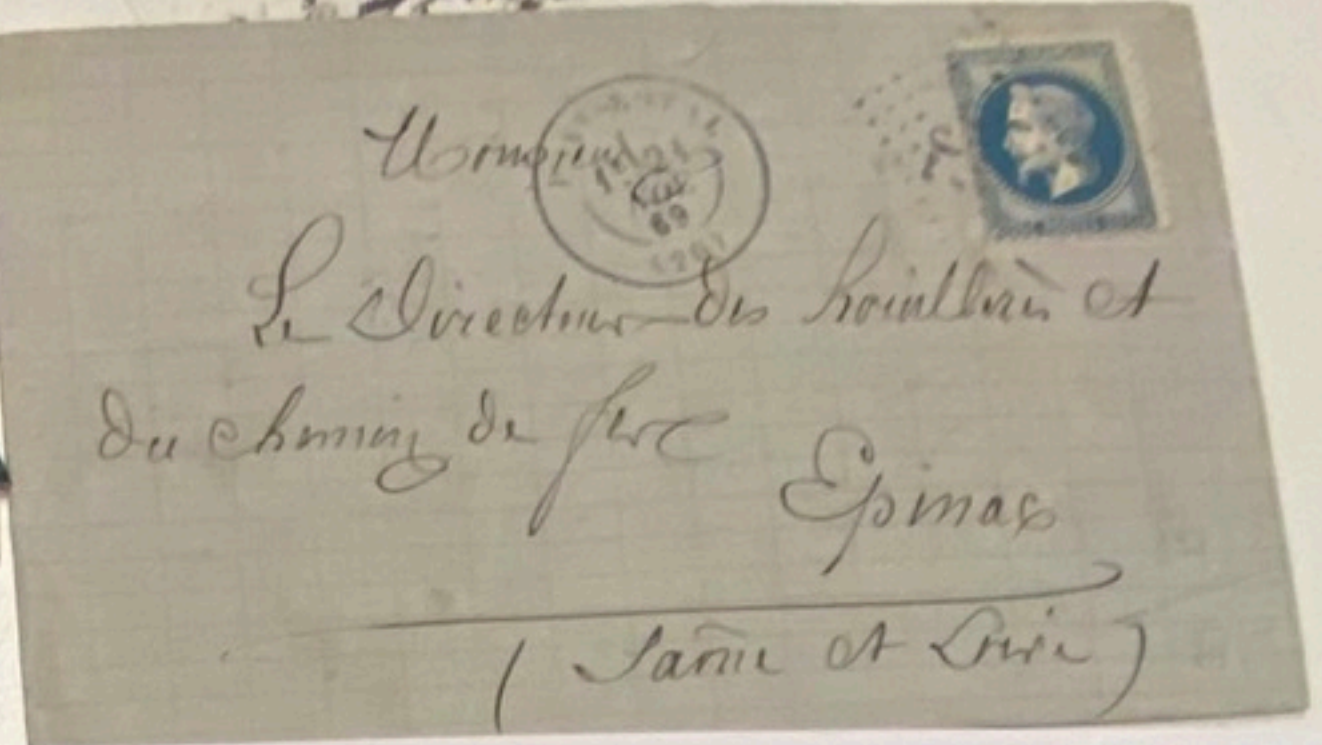 Monsieur
Le Directeur des houillères et
du chemin de fer
Epinac
(Saône et Loire)
21
69